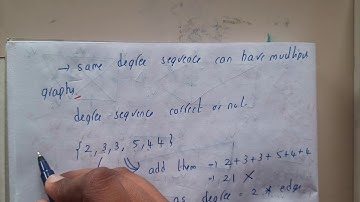 → same degree sequence can have multiple
graphs.
degree sequence correct or not.
{2, 3, 3, 5, 4 4}
add them ⇒ 2+3+3+5+4+4
⇒ 21 ×
as degree = 2 * edge